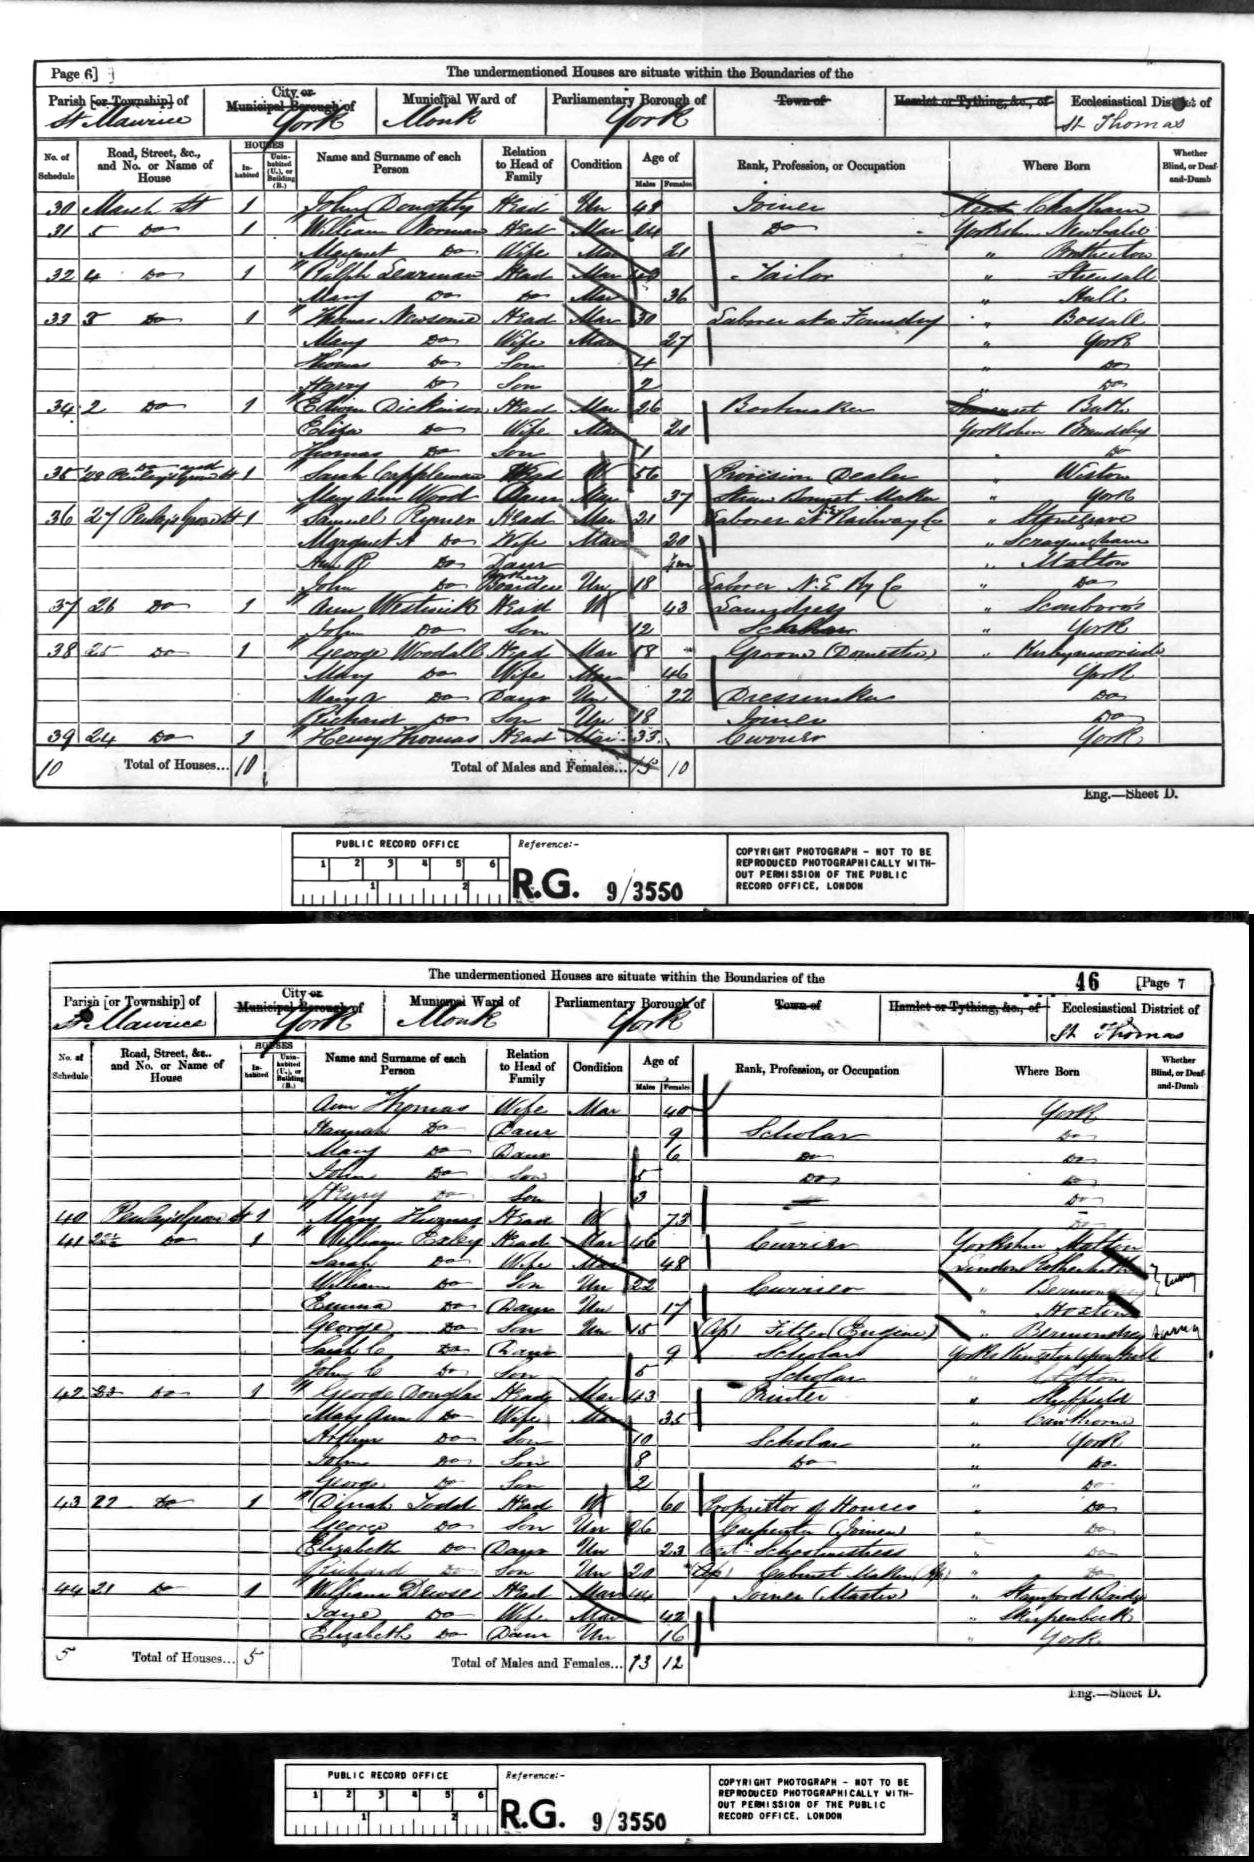 Page 6]
The undermentioned Houses are situate within the Boundaries of the
Parish [or Township] of
St Maurice
City or
Municipal Borough of
York
Municipal Ward of
Monk
Parliamentary Borough of
York
Town of
Hamlet or Tything, &c., of
Ecclesiastical District of
St Thomas
No. of Schedule
Road, Street, &c., and No. or Name of House
HOUSES
Inhabited
Uninhabited (U.), or Building (B.)
Name and Surname of each Person
Relation to Head of Family
Condition
Age of
Males
Females
Rank, Profession, or Occupation
Where Born
Whether Blind, or Deaf-and-Dumb
30 March St 1 John Head Un Joiner Kent Chatham
31 5 Do 1 William Norman Head Mar 24 Do Yorkshire Newbald
Margaret Do Wife Mar 21 " Brotherton
32 4 Do 1 Ralph Learman Head Mar Tailor " Strensall
Mary Do Do Mar 36 " Hull
33 3 Do 1 Thomas Newsome Head Mar 30 Laborer at a Foundry " Bossall
Mary Do Wife Mar 27 " York
Thomas Do Son 4 " Do
Harry Do Son 2 " Do
34 2 Do 1 Edwin Dickinson Head Mar 26 Bootmaker Somerset Bath
Eliza Do Wife Mar Yorkshire Brandsby
Thomas Do Son 1 Do
35 Do and 28 Penley's Grove St 1 Sarah Cappleman Head W 56 Provision Dealer " Wistow
Mary Ann Wood Daur Mar 37 Straw Bonnet Maker " York
36 27 Penley's Grove St 1 Samuel Rymer Head Mar 21 Laborer at N.E. Railway Co " Stonegrave
Margaret A Do Wife Mar 20 " Scrayingham
Ann R Do Daur " Malton
John Do Brother Boarder Un 18 Laborer N.E. Ry Co " Do
37 26 Do 1 Ann Westwick Head W 43 Laundress " Scarboro'
John Do Son 12 Scholar " York
38 25 Do 1 George Woodall Head Mar Groom (Domestic) " Kirbymoorside
Mary Do Wife Mar 46 York
Mary A Do Daur Un 22 Dressmaker Do
Richard Do Son Un 18 Joiner Do
39 24 Do 1 Henry Thomas Head Mar 33 Currier York
10 Total of Houses... 10 Total of Males and Females... 15 10
Eng.—Sheet D.
PUBLIC RECORD OFFICE
1 2 3 4 5 6
1 2
Reference:-
R.G. 9/3550
COPYRIGHT PHOTOGRAPH - NOT TO BE
REPRODUCED PHOTOGRAPHICALLY WITH-
OUT PERMISSION OF THE PUBLIC
RECORD OFFICE, LONDON
The undermentioned Houses are situate within the Boundaries of the
46
[Page 7
Parish [or Township] of
St Maurice
City or
Municipal Borough of
York
Municipal Ward of
Monk
Parliamentary Borough of
York
Town of
Hamlet or Tything, &c., of
Ecclesiastical District of
St Thomas
No. of Schedule
Road, Street, &c., and No. or Name of House
HOUSES
Inhabited
Uninhabited (U.), or Building (B.)
Name and Surname of each Person
Relation to Head of Family
Condition
Age of
Males
Females
Rank, Profession, or Occupation
Where Born
Whether Blind, or Deaf-and-Dumb
Ann Thomas Wife Mar 40 York
Hannah Do Daur 9 Scholar Do
Mary Do Daur 6 Do Do
John Do Son 5 Do Do
Henry Do Son 3 Do
40 Penley's Grove St 1 Mary Thomas Head W 73 Do
41 Do 1 William Exley Head Mar 46 Currier Yorkshire Malton
Sarah Do Wife Mar 48 London Rotherhithe
William Do Son Un 22 Currier " Bermondsey
Emma Do Daur Un 17 " Hoxton
George Do Son Un 15 (Ap) Fitter (Engine) " Bermondsey Surrey
Sarah C Do Daur 9 Scholar Yorks Kingston upon Hull
John C Do Son 5 Scholar
42 Do 1 George Douglas Head Mar 43 Printer " Sheffield
Mary Ann Do Wife Mar 35 " Cawthorne
Arthur Do Son 10 Scholar " York
John Do Son 8 Do " Do
George Do Son 2 Do
43 22 Do 1 Dinah Todd Head W 60 Proprietor of Houses " Do
George Do Son Un 26 Carpenter (Joiner) " Do
Elizabeth Do Daur Un 23 Schoolmistress " Do
Richard Do Son Un 20 (Ap) Cabinet Maker (Ap) " Do
44 21 Do 1 William Dewse Head Mar 44 Joiner (Master) " Stamford Bridge
Jane Do Wife Mar 42 " Skirpenbeck
Elizabeth Do Daur Un 16 " York
5 Total of Houses... 5 Total of Males and Females... 13 12
Eng.—Sheet D.
PUBLIC RECORD OFFICE
1 2 3 4 5 6
1 2
Reference:-
R.G. 9/3550
COPYRIGHT PHOTOGRAPH - NOT TO BE
REPRODUCED PHOTOGRAPHICALLY WITH-
OUT PERMISSION OF THE PUBLIC
RECORD OFFICE, LONDON